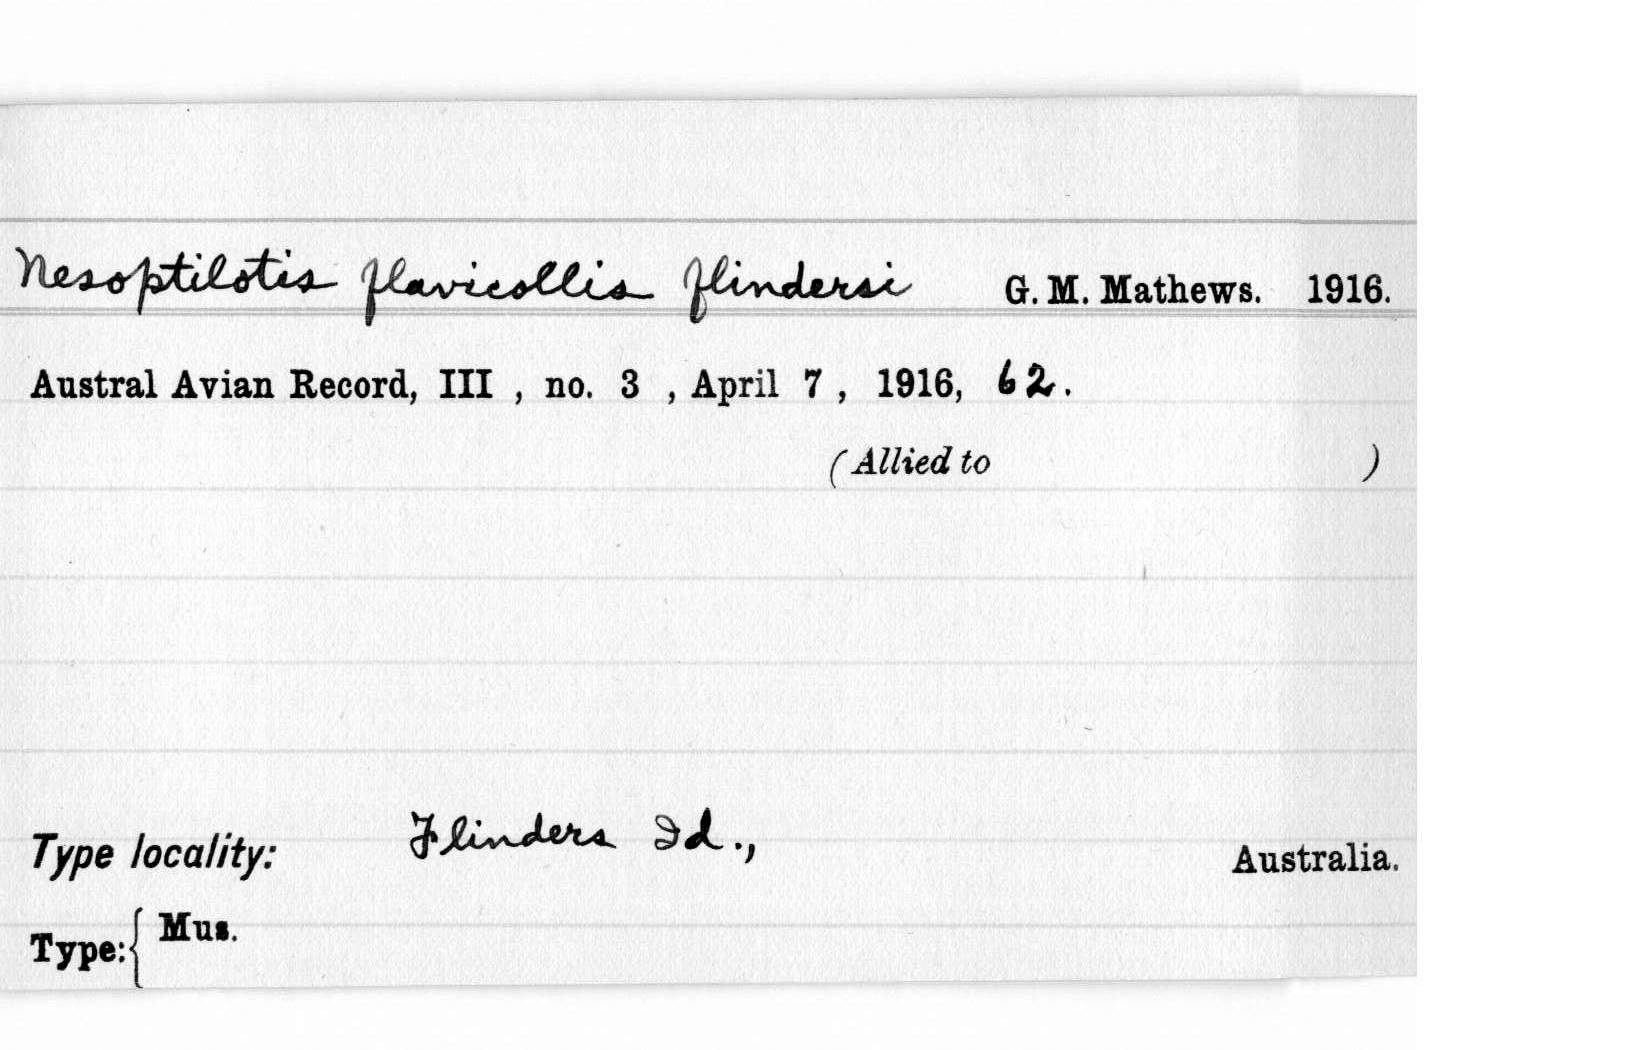 Nesoptilotis flavicollis flindersi G. M. Mathews. 1916.
Austral Avian Record, III , no. 3 , April 7 , 1916, 62.
(Allied to )
Type locality: Flinders Id., Australia.
Type: { Mus.